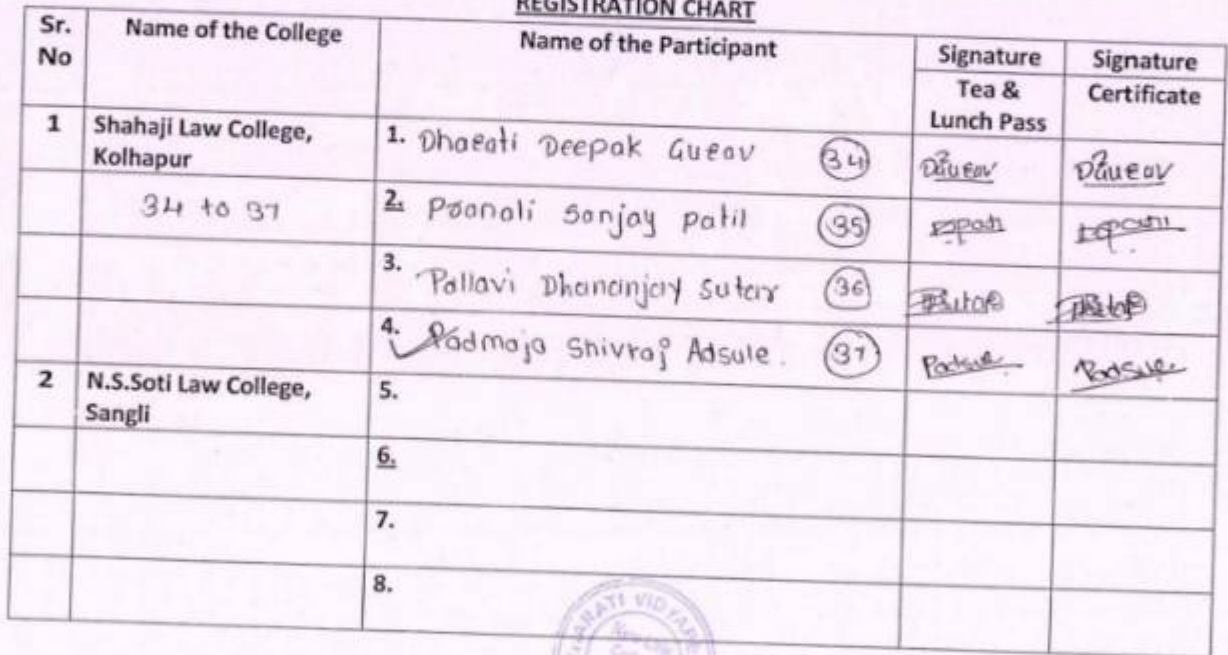 REGISTRATION CHART
Sr. No
Name of the College
Name of the Participant
Signature
Tea & Lunch Pass
Signature
Certificate
1
Shahaji Law College, Kolhapur
1. Dharati Deepak Gurav 34
DGurav
DGurav
34 to 37
2. Pranali Sanjay patil 35
3. Pallavi Dhananjay Sutar 36
PSutar
PSutar
4. Padmaja Shivraj Adsule. 37
Padsule
Padsule
2
N.S.Soti Law College, Sangli
5.
6.
7.
8.